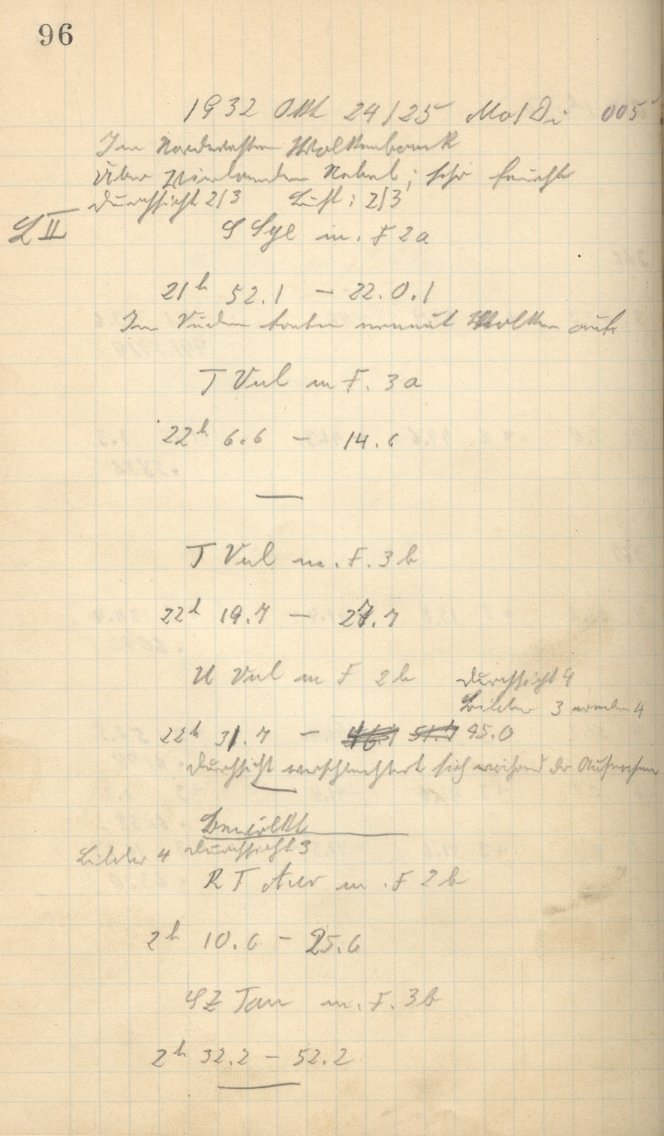 96
1932 Okt 24/25 Mo/Di 005
Im Nordwesten Wolkenbank
Über Nebel; sehr feucht
Durchsicht 2/3 Luft: 2/3
L II
S Sge m. F 2a
21h 52.1 – 22.0.1
Im Süden treten erneut Wolken auf.
T Vul m F. 3a
22h 6.6 – 14.6
T Vul m. F. 3b
22h 19.7 – 27.7
U Vul m F 2b Durchsicht 4
Bilder 3 4
22h 31.7 – 45.0
Durchsicht verschlechtert sich während der Aufnahme
Bewölkt
Bilder 4 Durchsicht 3
RT Aur m. F 2b
2h 10.6 – 25.6
SZ Tau m. F. 3b
2h 32.2 – 52.2